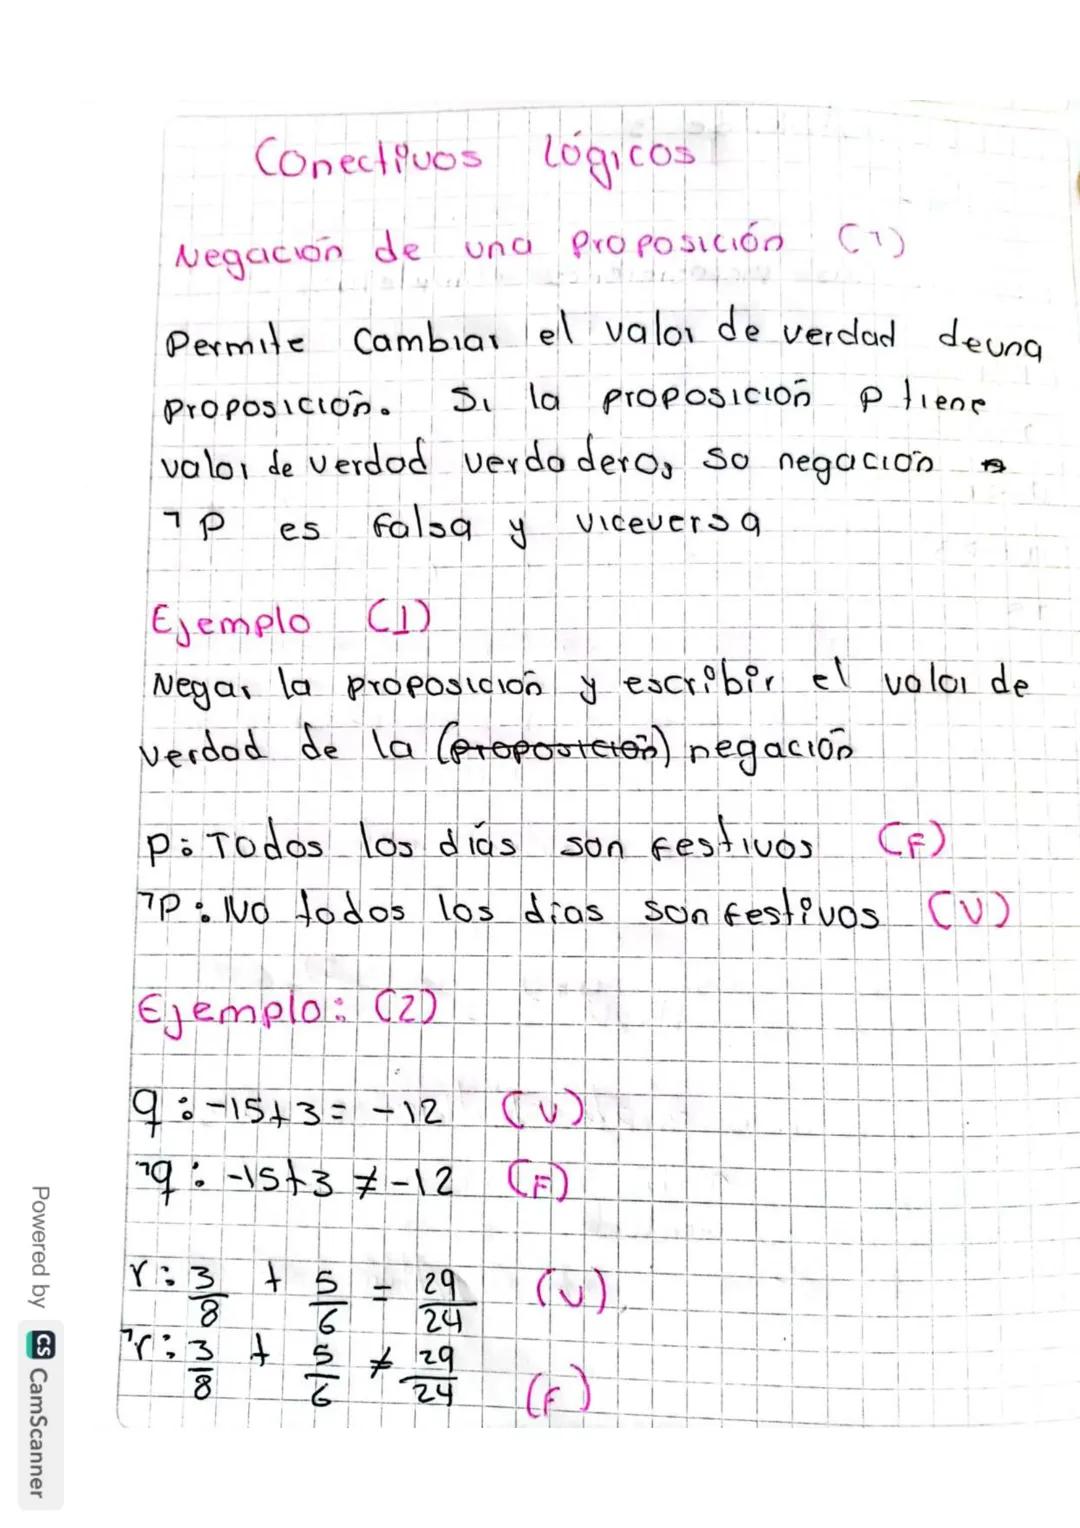 Conectivos lógicos
Negación de una proposición (¬)
Permite cambiar el valor de verdad de una
proposición. Si la proposición p tiene
valor de verdad verdadero, so negación
¬p es falsa y viceversa
Ejemplo (1)
Negar la proposición y escribir el valor de
verdad de la (proposición) negación
p: Todos los días son festivos (F)
¬p: No todos los días son festivos (V)
Ejemplo: (2)
q: -15+3 = -12 (V)
¬q: -15+3 ≠ -12 (F)
r: 3/8 + 5/6 = 29/24 (V)
¬r: 3/8 + 5/6 ≠ 29/24 (F)
Powered by CS CamScanner